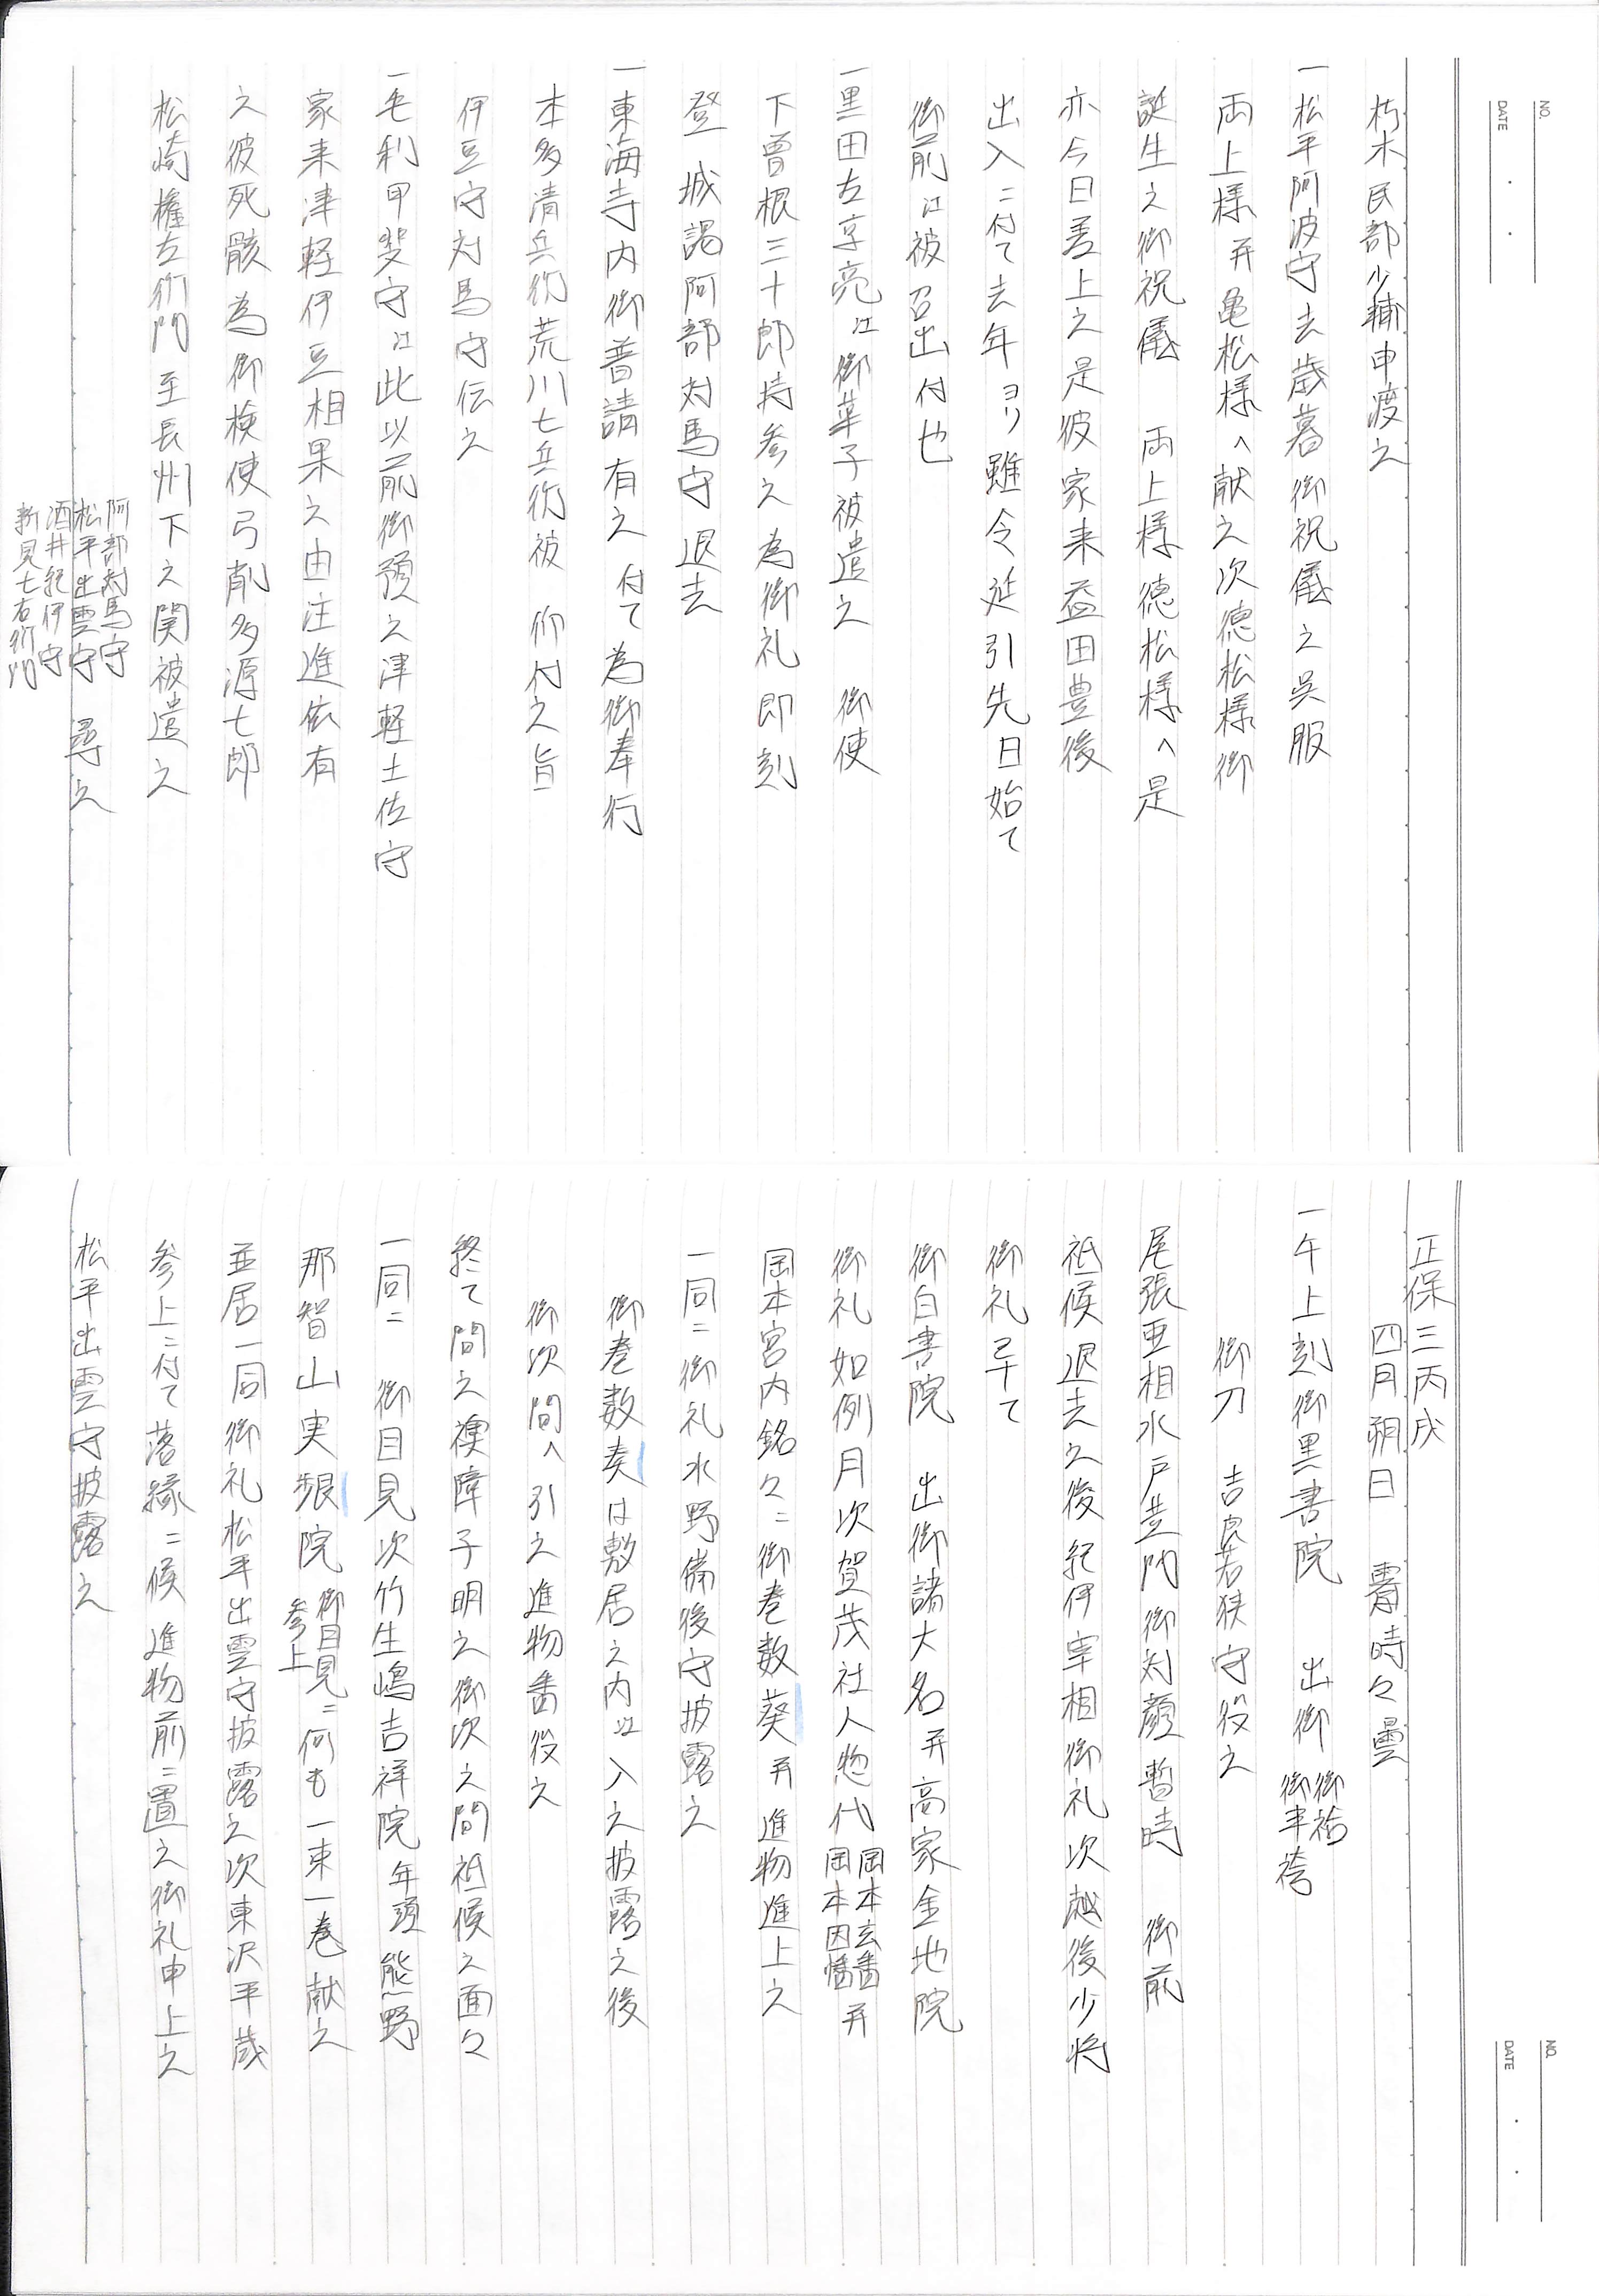 NO.
DATE
朽木民部少輔申渡之
一松平阿波守去歳暮御祝儀之呉服
両上様并亀松様へ献之次徳松様御
誕生之御祝儀 両上様徳松様へ是
亦今日差上之是彼家来益田豊後
出入ニ付て去年ヨリ雖令延引先日始て
御前江被召出付也
一黒田右京亮江御菓子被遣之 御使
下曽根三十郎持参之為御礼即刻
登 城謁阿部対馬守退去
一東海寺内御普請有之付て為御奉行
本多清兵衛荒川七兵衛被 仰付之旨
伊豆守対馬守伝之
一毛利甲斐守江此以前御預之津軽土佐守
家来津軽伊豆相果之由注進依有
之彼死骸為御検使弓削多源七郎
松崎権左衛門至長州下之関被遣之
阿部対馬守
松平出雲守 尋之
酒井紀伊守
新見七右衛門
NO.
DATE
正保三丙戌
四月朔日 霽時々曇
一午上刻御黒書院 出御 御袷
御半袴
御刀 吉良若狭守役之
尾張亜相水戸黄門御対顔暫時 御前
祗候退去之後紀伊宰相御礼次越後少将
御礼畢て
御白書院 出御諸大名并高家金地院
御礼如例月次賀茂社人惣代 岡本玄蕃
岡本因幡 并
岡本宮内銘々ニ御巻数葵并進物進上之
一同ニ御礼水野備後守披露之
御巻数葵は敷居之内江入之披露之後
御次間へ引之進物番役之
終て間之襖障子明之御次之間祗候之面々
一同ニ 御目見次竹生嶋吉祥院年頭熊野
那智山実報院 御目見ニ
参上 何も一束一巻献之
並居一同御礼松平出雲守披露之次東沢平蔵
参上ニ付て落縁ニ候進物前ニ置之御礼申上之
松平出雲守披露之